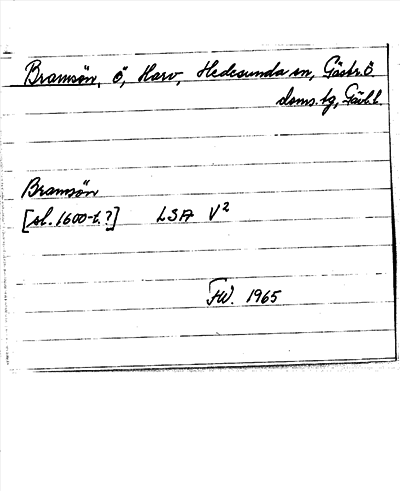 Bramsön, ö, Harv, Hedesunda sn, Gästr. ö
doms. tg, Gävl. l.
Bramsön
[sl. 1600-t.?] LSA V²
FW. 1965